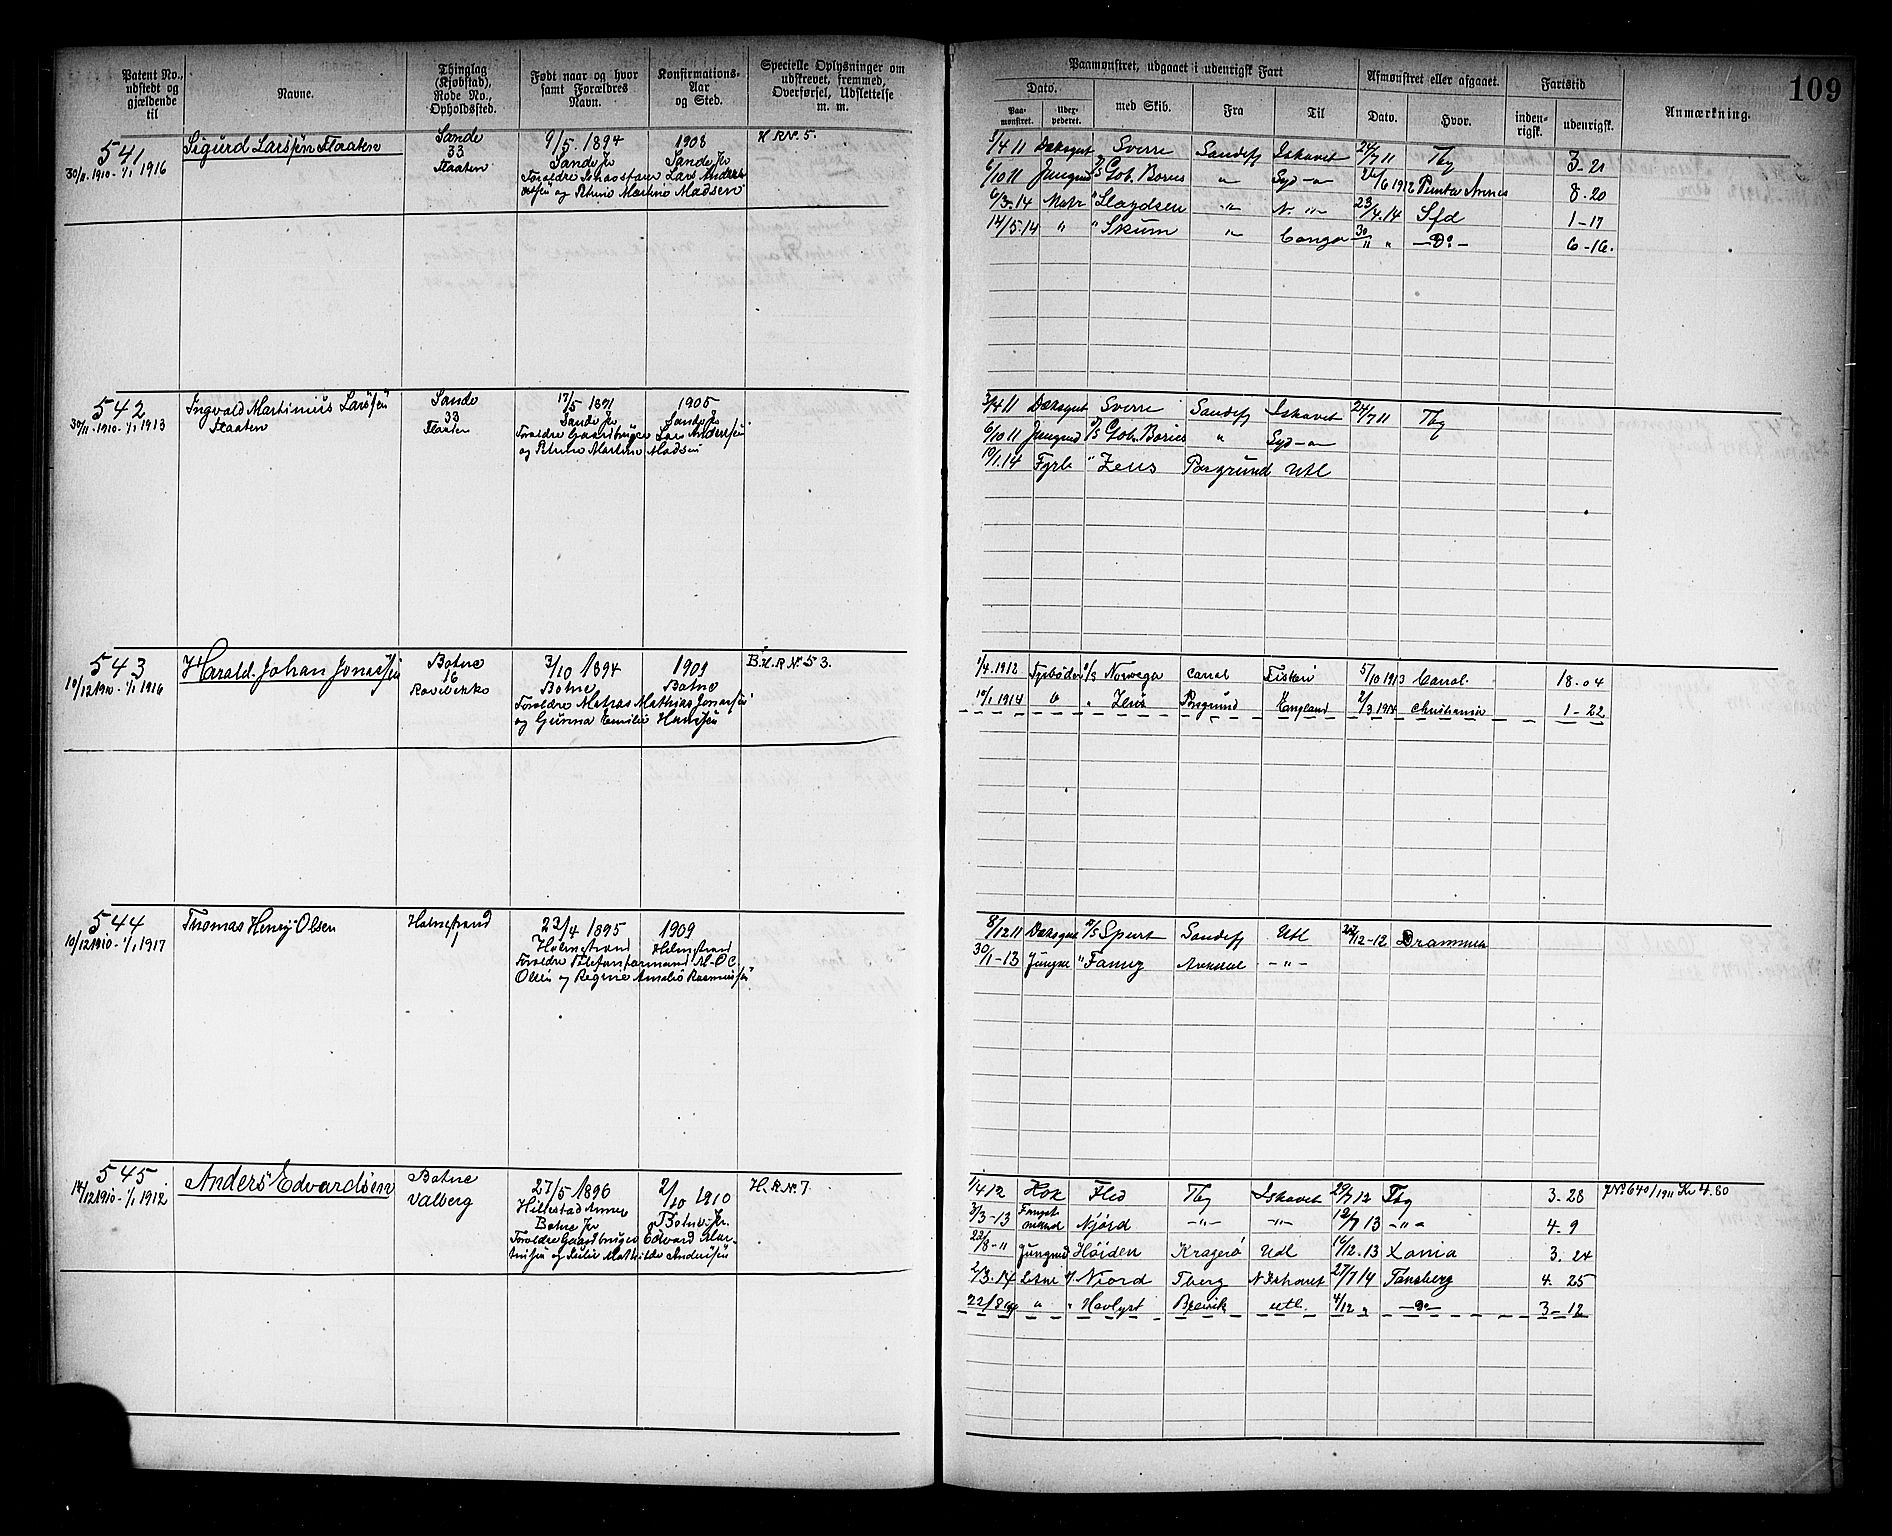 109
Patent No., udstedt og gjældende til
Navne.
Thinglag (Kjøbstad), Rode No., Opholdssted.
Født naar og hvor samt Forældres Navn.
Konfirmations-Aar og Sted.
Specielle Oplysninger om udskrevet, fremmed, Overførsel, Udslettelse m. m.
Paamønstret, udgaaet i udenrigsk Fart
Dato.
Paa-mønstret.
med Skib.
Fra
Til
Afmønstret eller afgaaet.
Dato.
Hvor.
Fartstid
inden-rigsk.
udenrigsk.
Anmærkning.
541
30/11. 1910 - 1/1 1916
Sigurd Larssen Flaaten
Sande
33
Flaaten
9/5. 1894
Sande Js
1908
Sande Js
H R№. 5.
og Petrine Martine Madsen
1/4 11 Dæksgut Sverre Sandefj Ishavet 24/7 11 Tbg 3-21
6/10 11 Jungmd Gob. Bories " Syd-" 1912 Punta Arenas 8-20
6/3-14 Matr " N. "- 23/4.14 Sfd 1-17
14/5.14 " " Skum "- Congo 30/11 " -Do- 6-16.
542
30/11. 1910 - 1/1 1913
Ingvald Martinius Larssen
Flaaten
Sande
33
Flaaten
17/5 1891
Sande Js
1905
Sande Js
Forældre Gaardbruger Lars Andersen
og Petrine Martine Madsen
3/4 11 Dæksgut Sverre Sandefj Ishavet 24/7 11 Tbg
6/10 11 Jungmd Gob. Bories " Syd-"
10/1.14 Fyrb " Zeus Porsgrund Utl
543
10/12 1910 - 1/1 1916
Harald Johan Jonassen
Botne
16
3/10 1894
Botne
1909
Botne
B.H.R№ 53.
Forældre Matros Mathias Jonassen
og Gunna Emilie Hansen
1/4. 1912 Fyrbøder Norvega 5/10 1913 18-04
10/1 1914 " " Zeus Porsgrund England 2/3 1914 Christiania 1-22
544
10/12 1910 - 1/1 1917
Thomas Henry Olsen
Holmestrand
22/4 1895
Holmestrand
1909
Holmestrand
Olsen og Regine Amalie Rasmussen
8/12 11 Dæksgut Spurt Sandefj Utl 12-12 Drammen
30/1-13 Jungm " Fanny Arendal -"-
545
14/12 1910 - 1/1 1912
Anders Edvardsen
Botne
Valberg
27/5 1896
Hillestad Annex
Botne Js
2/10 1910
Botne Js.
H. R№. 7
Forældre Gaardbruger Edvard Mar-
tinsen og Julie Mathilde Andersen
1/4 12 Kok Fled Tbg Ishavet 29/7 12 Tbg 3-28
3/3-13 Fangst mand Njórd -"- -"- 12/7 13 -"- 4-9
22/8-" Jungmd Høiden Kragerø Udl 16/12.13 3-24
2/3.14 Njord Tberg N Ishavet 27/7 14 Tønsberg 4-25
22/8 14 " " Havlyst Brevik utl. 4/12 " -Do- 3-12
J№ 640/1911 Kr 4.80